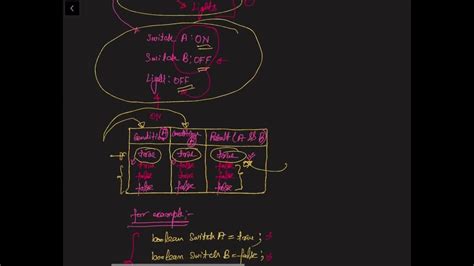 Lights
Switch A: ON
Switch B: OFF
Light: OFF
OR
Condition A Condition B Result (A && B)
true true true
true false false
false true false
false false false
for example:-
boolean switch A = true;
boolean switch B = false;